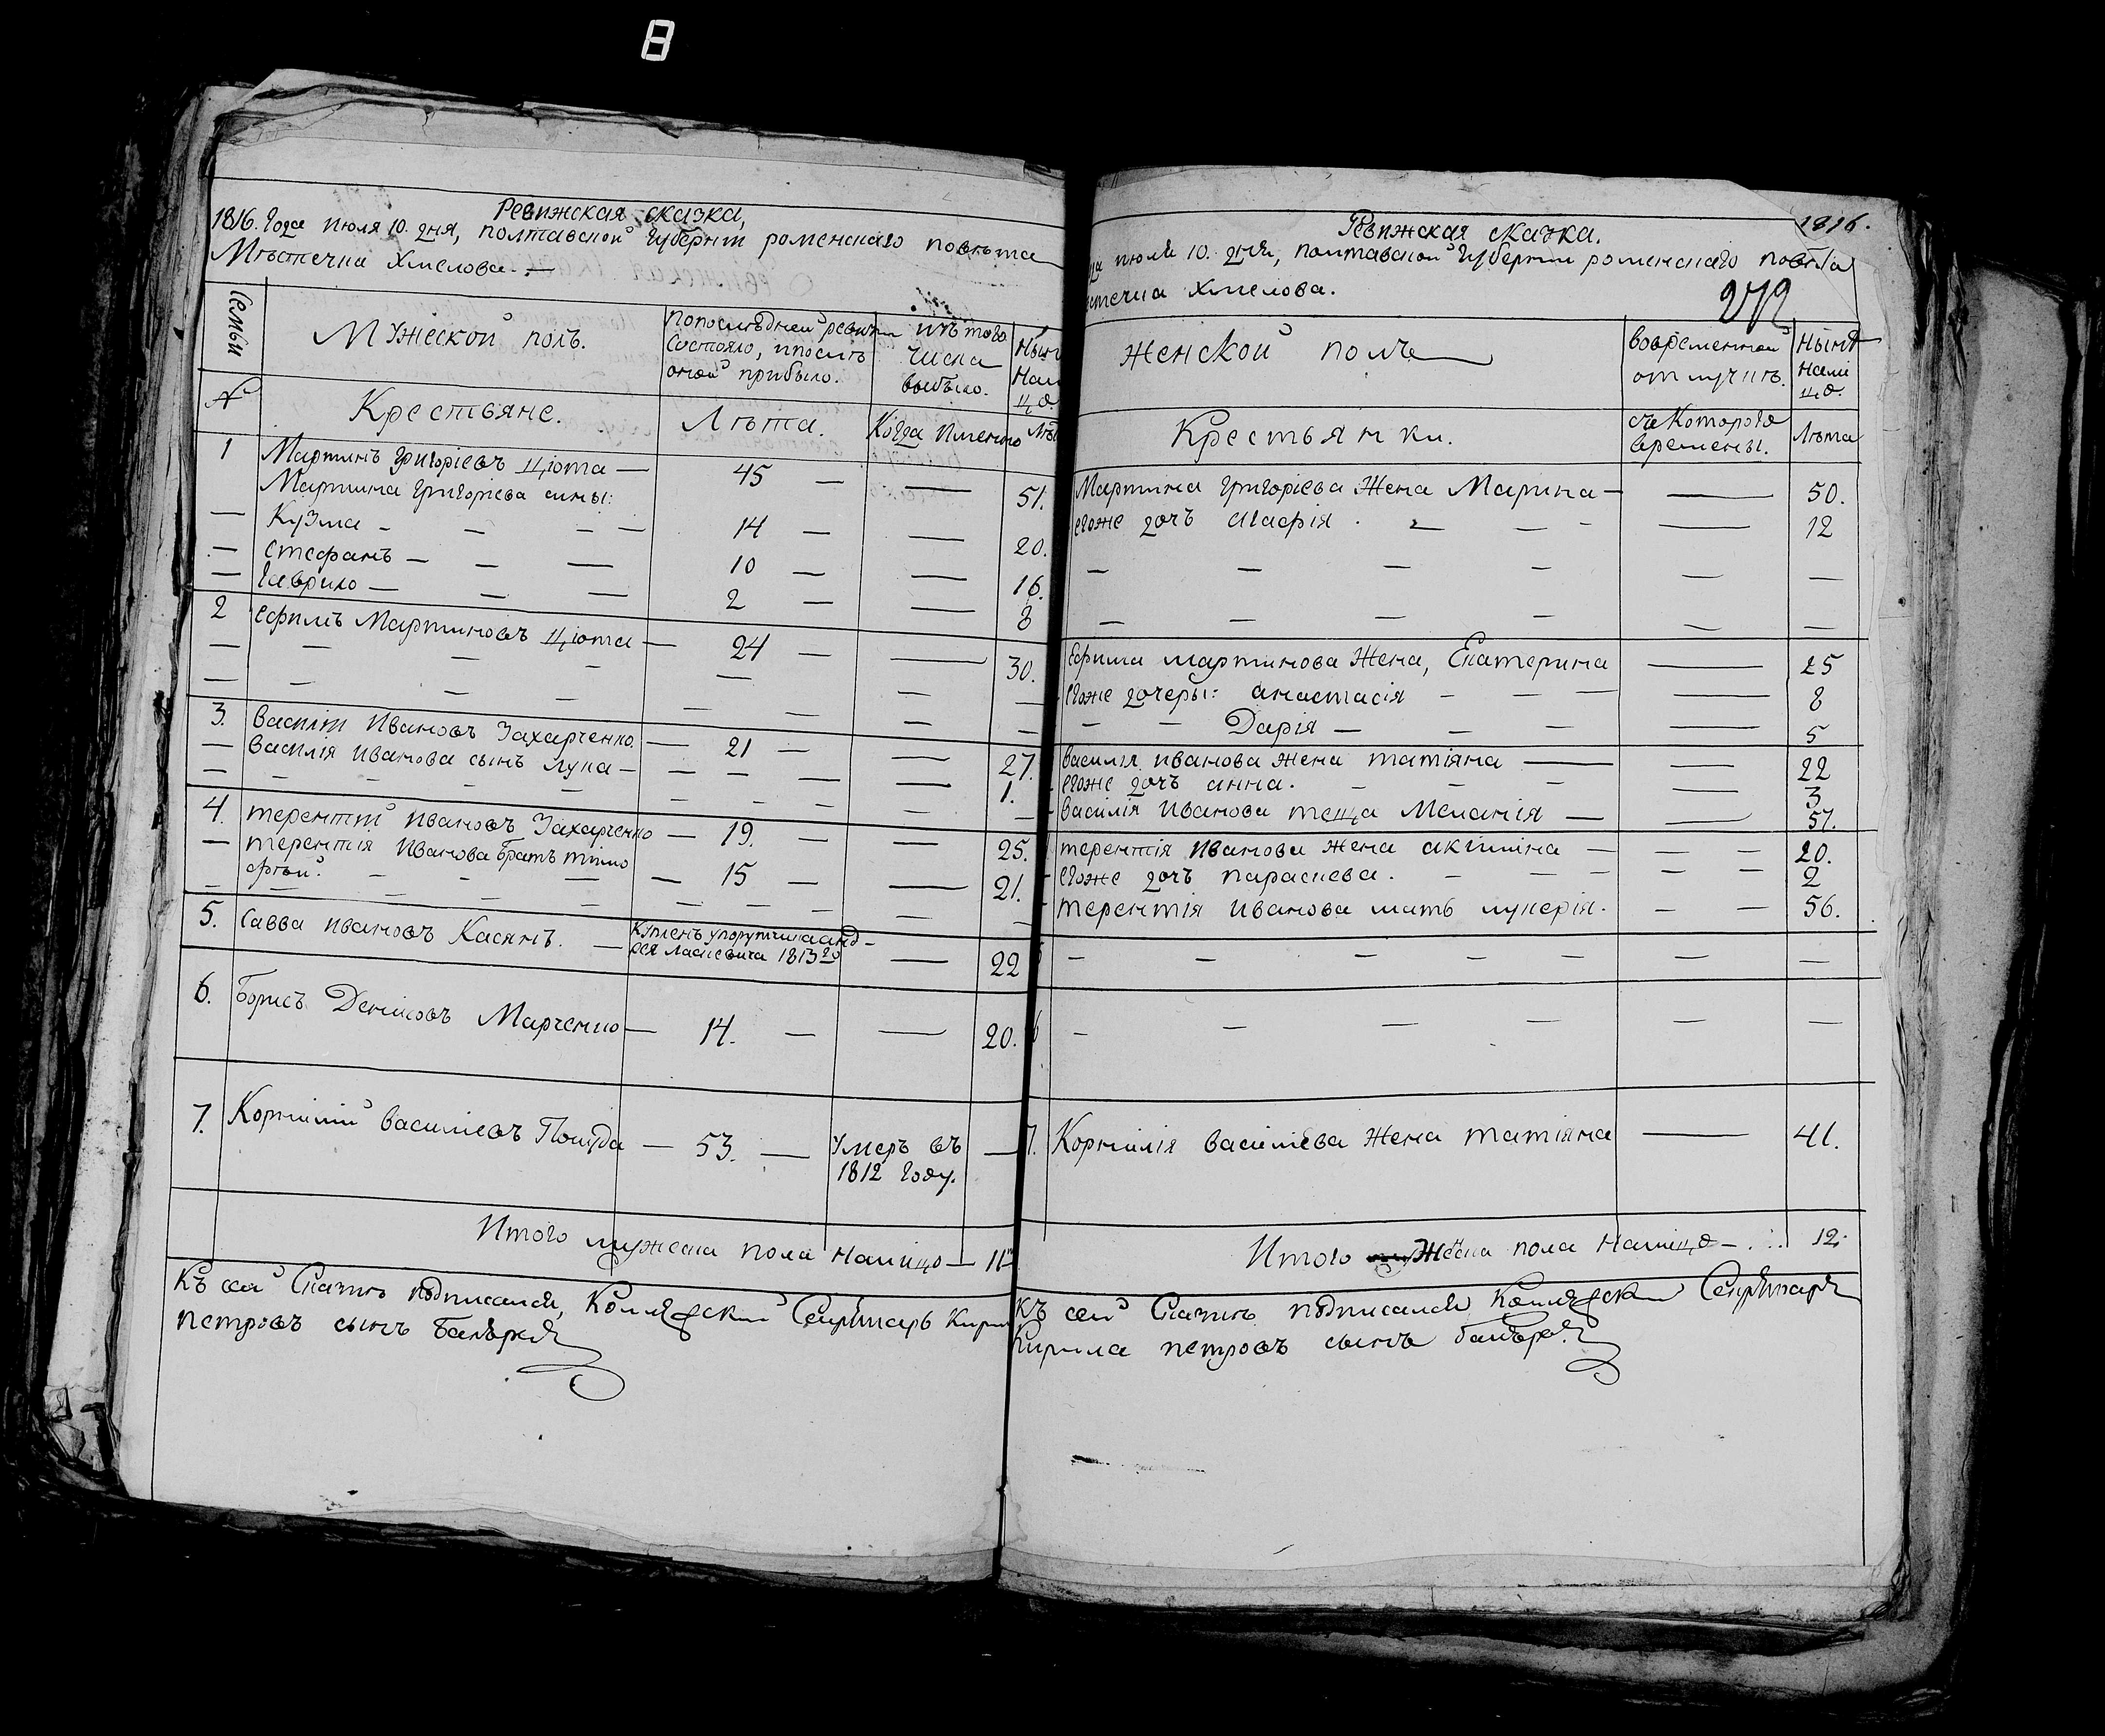 8
Ревижская сказка,
1816. Года июля 10. дня, полтавской Губернии роменского повѣта
Мѣстечка Хмелова. —
Семьи
Мужеской полъ.
Попослѣдней ревизіи
состояло, ипослѣ
оной прибыло.
изъ того
числа
выбыло.
Нын
Нал
цо.
№
Крестьяне.
Лѣта.
Когда Именно
Лѣ
1 Мартинъ Григоріевъ Цюта — 45 — — 51.
Мартина Григоріева сины:
— Кузма — — — 14 — — 20.
— Стефанъ — — — 10 — — 16.
— Гаврило — — — 2 — — 8
2 Ефимъ Мартиновъ Цюта — 24 — — 30.
3. Василій Ивановъ Захарченко — 21 — — 27.
— Василія Иванова сынъ Лука — — — — 1.
4. терентій Ивановъ Захарченко — 19. — — 25.
— терентія Иванова братъ тимо
фѣй. — — — 15 — — 21.
5. Савва Ивановъ Касянъ. — Купленъ упорутчика анд-
рея Ласкевича 1813 го — 22
6. Борисъ Денисовъ Марченко — 14. — — 20.
7. Корнилий Василіевъ — 53. — Умеръ въ
1812 Году. —
Итого мужеска пола налицо — 11
Къ сей Скаскѣ подписался, Коллежский Секретарь Кирил
петровъ сынъ
1816.
Ревижская сказка.
да июля 10. дня, полтавской Губернии роменского повѣта
стечка Хмелова.
272
Женской полъ
вовременной
отлучкѣ.
Нынѣ
нали
цо.
Крестьянки.
съ Которого
времены.
Лѣта
Мартина Григоріева Жена Марина — — 50.
Егоже дочъ Агафія . — — — 12
Ефима Мартинова Жена, Екатерина — 25
Егоже дочеры: анастасія — — — 8
— — Дарія — — — — 5
Василія Иванова Жена татіяна — — 22
Егоже дочъ анна. — — — 3
Василія Иванова теща Меланія — — 57.
терентія Иванова Жена акилина — — — 20.
Егоже дочъ параскева. — — — — 2
терентія Иванова мать лукерія. — — 56.
5
6
7. Корнилія Василіева Жена татіяна — 41.
Итого Женска пола налицо — . . . 12.
Къ сей Скаскѣ подписался Коллежский Секретарь
Кирила петровъ сынъ